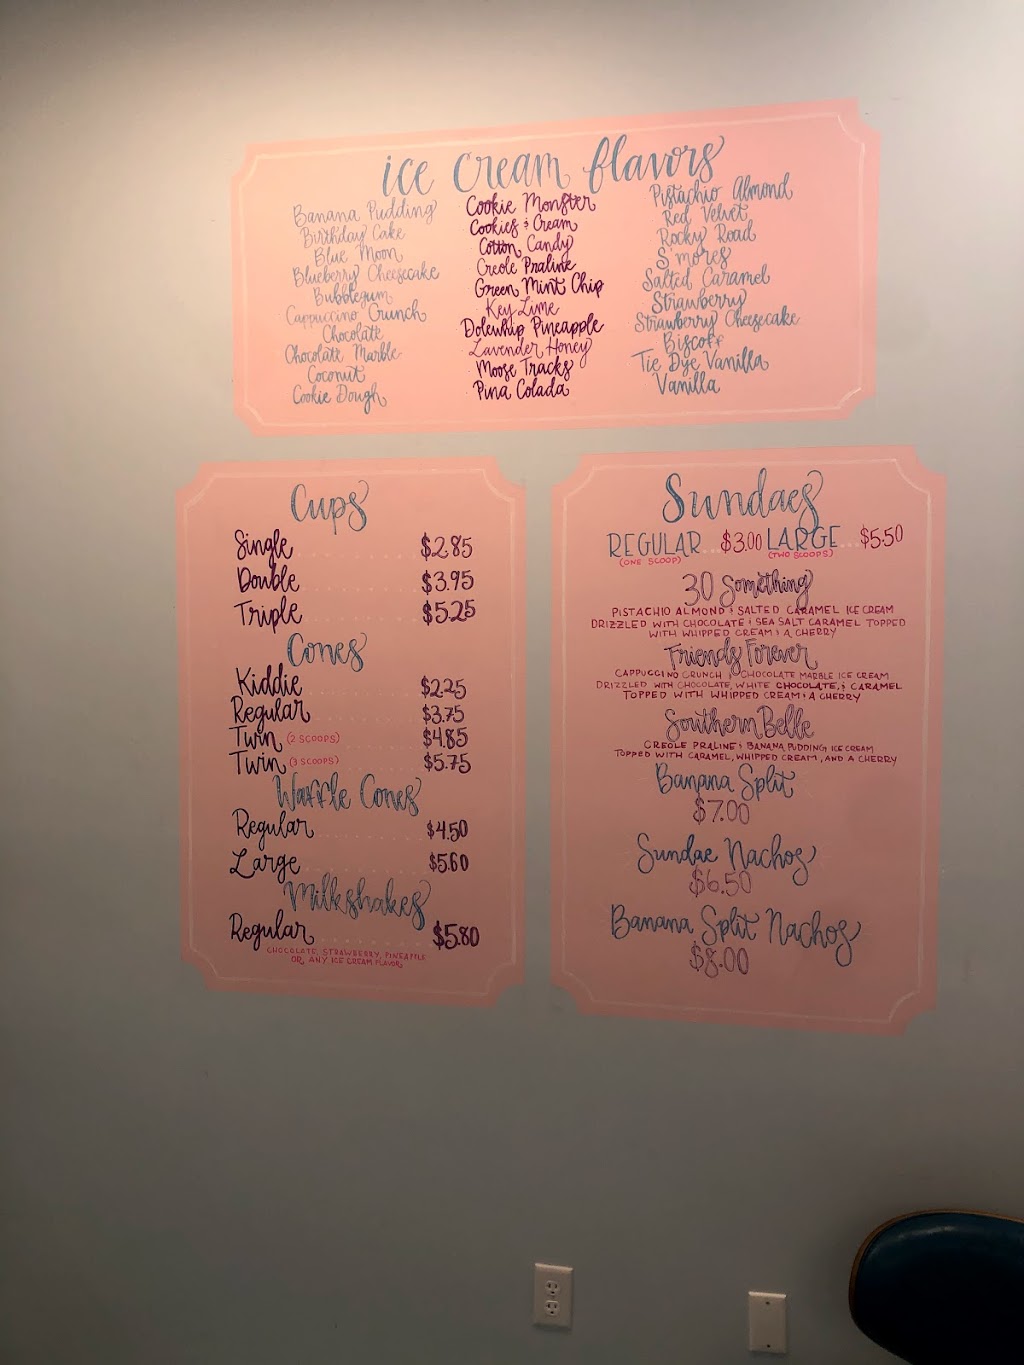 ice cream flavors
Banana Pudding
Birthday Cake
Blue Moon
Blueberry Cheesecake
Bubblegum
Cappuccino Crunch
Chocolate
Chocolate Marble
Coconut
Cookie Dough
Cookie Monster
Cookies & Cream
Cotton Candy
Creole Praline
Green Mint Chip
Key Lime
Dolewhip Pineapple
Lavender Honey
Moose Tracks
Pina Colada
Pistachio Almond
Red Velvet
Rocky Road
S'mores
Salted Caramel
Strawberry
Strawberry Cheesecake
Biscoff
Tie Dye Vanilla
Vanilla
Cups
Single $2.85
Double $3.95
Triple $5.25
Cones
Kiddie $2.25
Regular $3.75
Twin (2 SCOOPS) $4.85
Twin (3 SCOOPS) $5.75
Waffle Cones
Regular $4.50
Large $5.60
Milkshakes
Regular $5.80
CHOCOLATE, STRAWBERRY, PINEAPPLE
OR, ANY ICE CREAM FLAVOR
Sundaes
REGULAR $3.00 LARGE $5.50
(ONE SCOOP) (TWO SCOOPS)
30 Something
PISTACHIO ALMOND & SALTED CARAMEL ICE CREAM
DRIZZLED WITH CHOCOLATE & SEA SALT CARAMEL TOPPED
WITH WHIPPED CREAM & A CHERRY
Friends Forever
CAPPUCCINO CRUNCH & CHOCOLATE MARBLE ICE CREAM
DRIZZLED WITH CHOCOLATE, WHITE CHOCOLATE, & CARAMEL
TOPPED WITH WHIPPED CREAM & A CHERRY
Southern Belle
CREOLE PRALINE & BANANA PUDDING ICE CREAM
TOPPED WITH CARAMEL, WHIPPED CREAM, AND A CHERRY
Banana Split
$7.00
Sundae Nachos
$6.50
Banana Split Nachos
$8.00